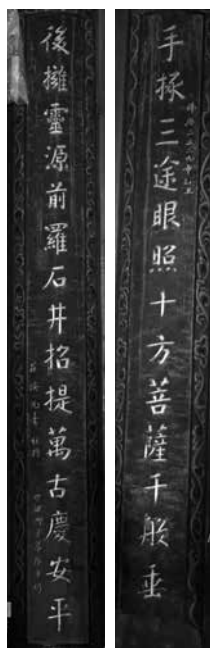 手援三途眼照十方菩薩千般垂
後擁靈源前羅石井招提萬古慶安平